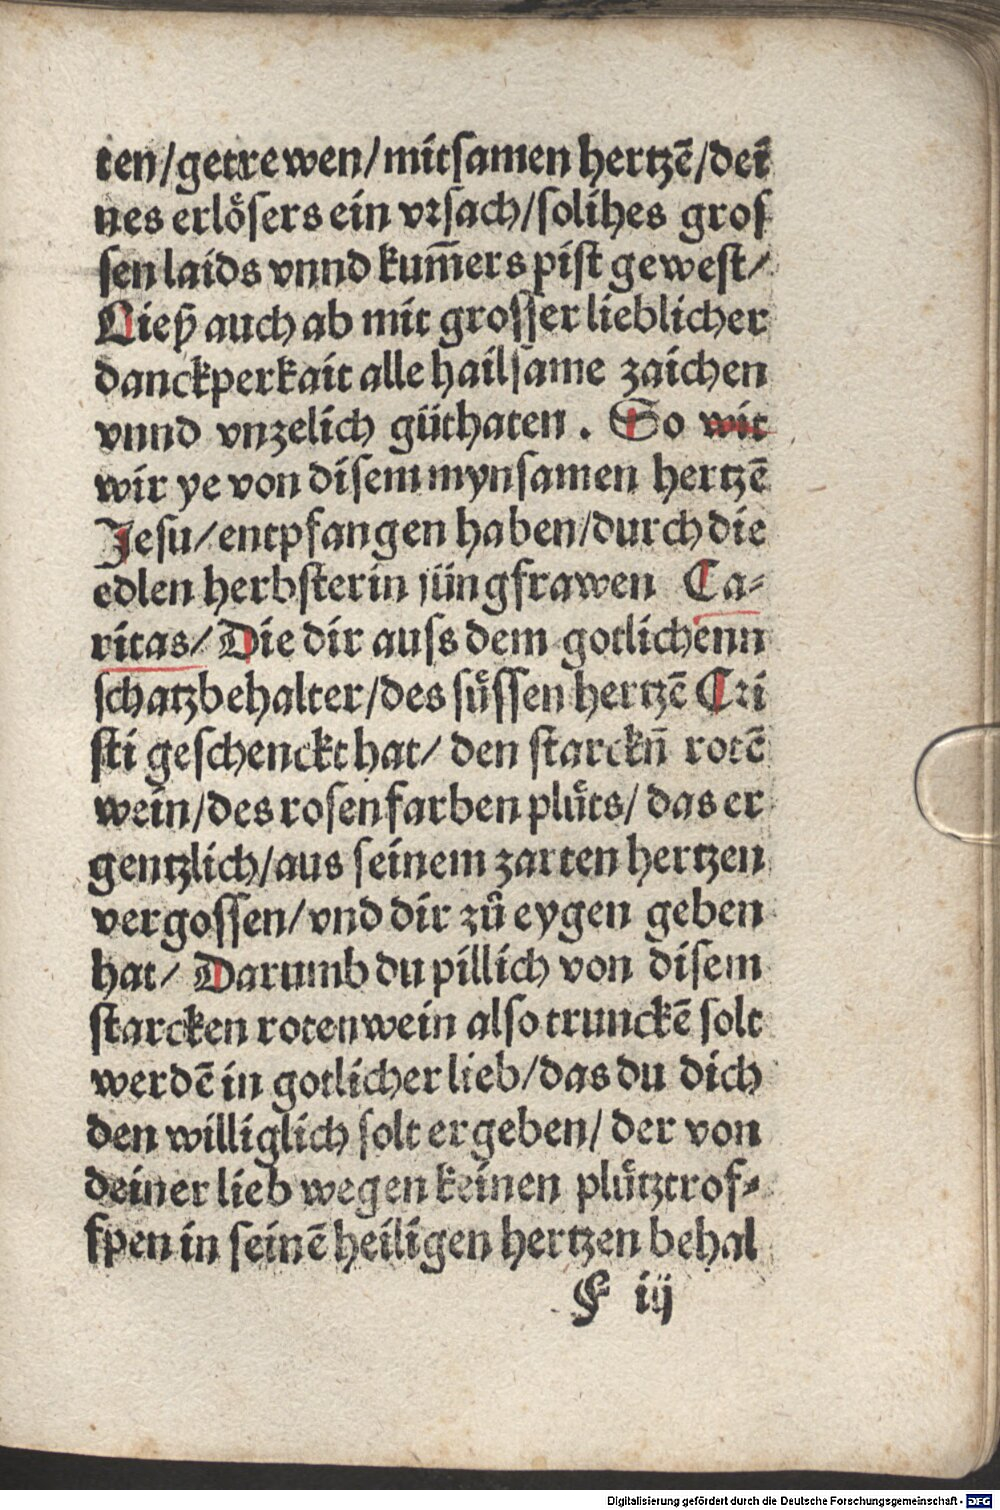 ten/getrewen/mitsamen hertzē/dei
nes erlöſers ein vrſach/ſolihes groſ
ſen laids vnnd kum̄ers piſt geweſt/
Lieſz auch ab mit groſſer lieblicher
danckperkait alle hailſame zaichen
vnnd vnzelich gůthaten . So wir
wir ye von diſem mynſamen hertzē
Jeſu/entpfangen haben/durch die
edlen herbſterin jüngfrawen Ca⸗
ritas/ Die dir auſs dem gotlichenn
ſchatzbehalter/des ſüſſen hertzē Cri
ſti geſchenckt hat/ den ſtarckn̄ rotē
wein/des roſenfarben plůts/ das er
gentzlich/aus ſeinem zarten hertzen
vergoſſen/vnd dir zů eygen geben
hat/ Darumb du pillich von diſem
ſtarcken roten wein alſo trunckē ſolt
werdē in gotlicher lieb/das du dich
den williglich ſolt ergeben/ der von
deiner lieb wegen keinen plůtztrof⸗
fpen in ſeinē heiligen hertzen behal
F iij
Digitalisierung gefördert durch die Deutsche Forschungsgemeinschaft - DFG